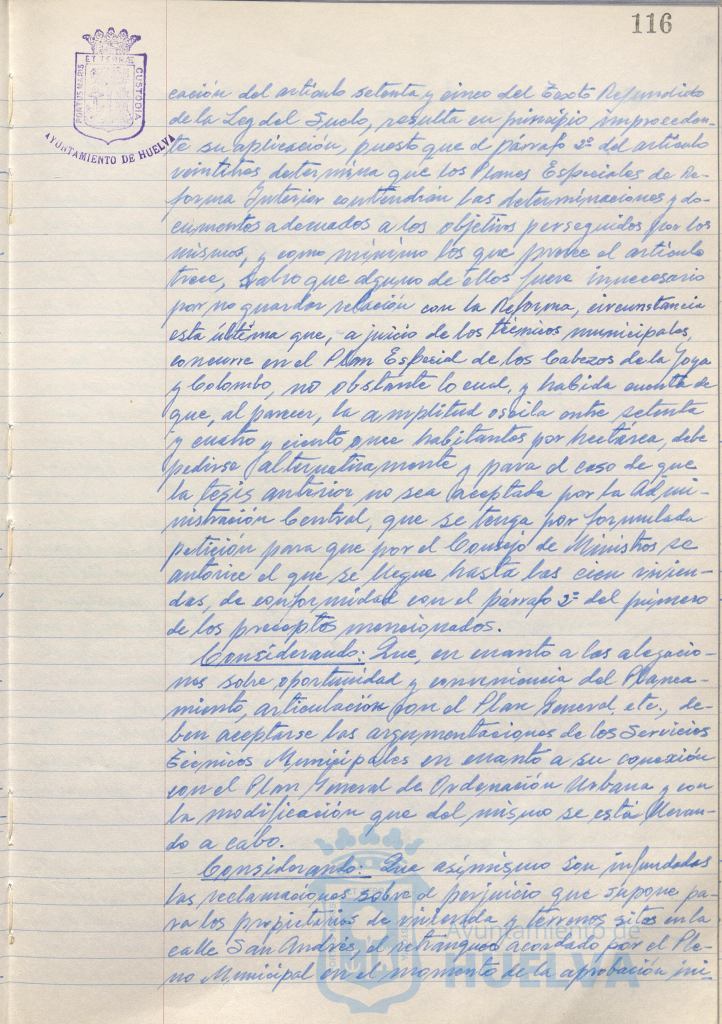 116
ET TERRÆ
PORTUS MARIS
CUSTODIA
AYUNTAMIENTO DE HUELVA
cación del artículo setenta y cinco del Texto Refundido
de la Ley del Suelo, resulta en principio improceden-
te su aplicación, puesto que el párrafo 2º del artículo
veintitres determina que los Planes Especiales de Re-
forma Interior contendrán las determinaciones y do-
cumentos adecuados a los objetivos perseguidos por los
mismos, y como mínimo los que prevee el artículo
trece, salvo que alguno de ellos fuera innecesario
por no guardar relación con la Reforma, circunstancia
esta última que, a juicio de los técnicos municipales,
concurre en el Plan Especial de los Cabezos de la Joya
y Colombo, no obstante lo cual, y habida cuenta de
que, al parecer, la amplitud oscila entre setenta
y cuatro y ciento once habitantes por hectárea, debe
pedirse alternativamente y para el caso de que
la tesis anterior no sea aceptada por la Admi-
nistración Central, que se tenga por formulada
petición para que por el Consejo de Ministros se
autorice el que se llegue hasta las cien vivien-
das, de conformidad con el párrafo 2º del primero
de los preceptos mencionados.
Considerando: Que, en cuanto a las alegacio-
nes sobre oportunidad y conveniencia del Planea-
miento, articulación con el Plan General etc., de-
ben aceptarse las argumentaciones de los Servicios
Técnicos Municipales en cuanto a su conexión
con el Plan General de Ordenación Urbana y con
la modificación que del mismo se está lleván-
do a cabo.
Considerando: Que asimismo son infundadas
las reclamaciones sobre el perjuicio que supone pa-
ra los propietarios de vivienda y terrenos sitos en la
calle San Andrés, el retranqueo acordado por el Ple-
no Municipal en el momento de la aprobación ini-
Ayuntamiento de
HUELVA